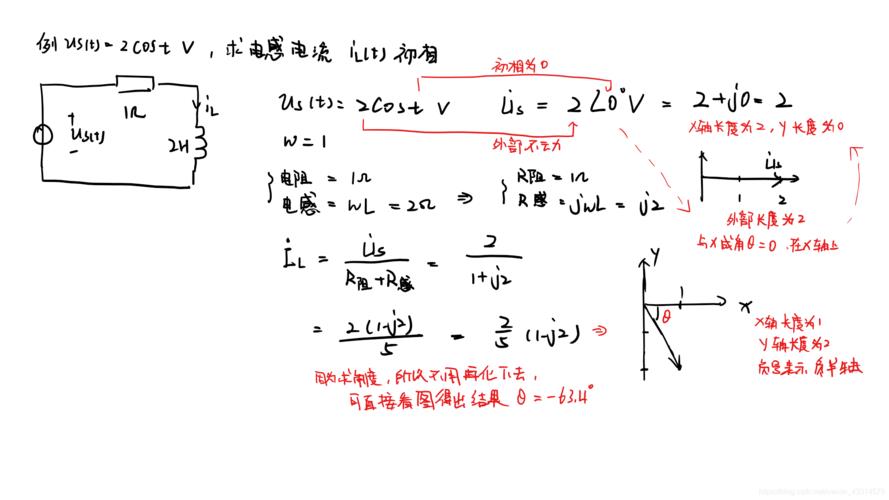 例 us(t)=2cost V，求电感电流 iL(t) 初相
初相为0
1Ω
iL
us(t)
+
-
2H
us(t)=2cost V U̇s = 2∠0°V = 2+j0=2
外部不去力
x轴长度为2，y长度为0
w=1
U̇s
1 2
电阻 = 1Ω
电感 = wL = 2Ω ⇒ R阻=1Ω
R感=jwL=j2
外部长度为2
与x成角θ=0，在x轴上
İL = U̇s / (R阻+R感) = 2 / (1+j2)
= 2(1-j2) / 5 = 2/5 (1-j2) ⇒
y
1
x
θ
x轴长度为1
y轴长度为2
负号表示，负半轴
因为求角度，所以不用再化下去，
可直接看图得出结果 θ=-63.4°